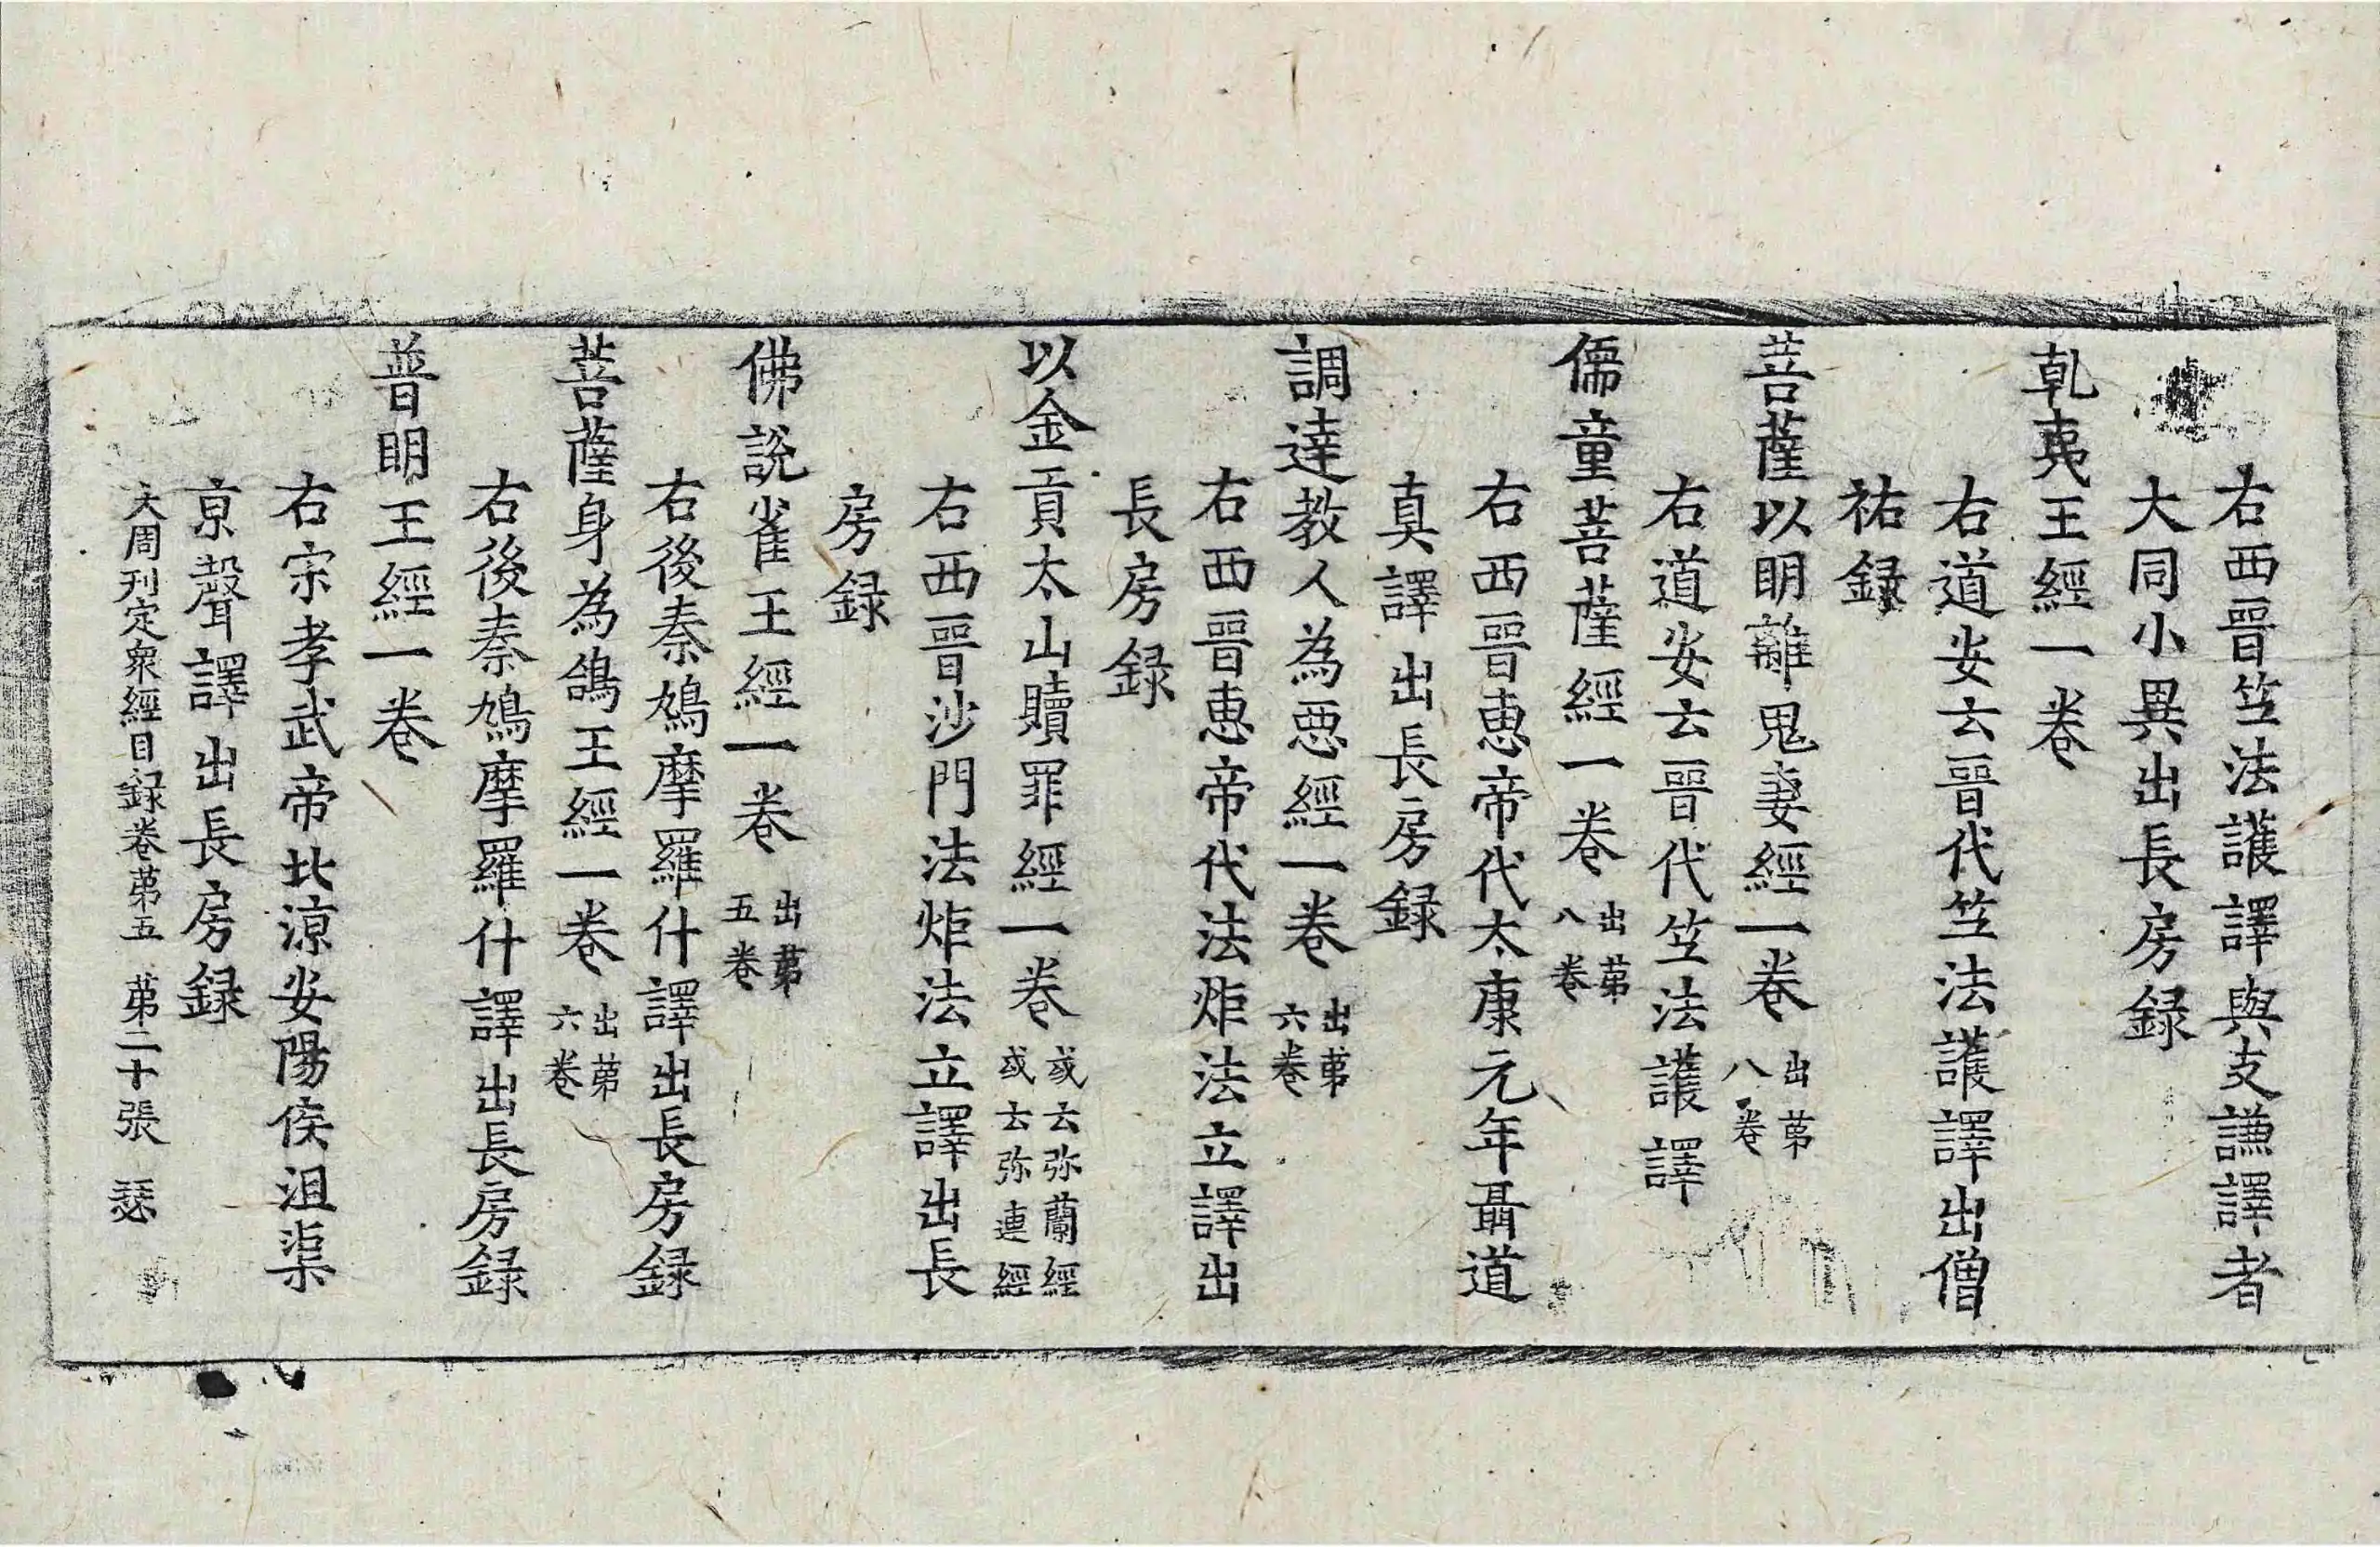 右西晉笁法護譯與支謙譯者
大同小異出長房録
乹夷王經一卷
右道安云晉代笁法護譯出僧
祐録
菩薩以明離鬼妻經一卷 出苐八卷
右道安云晉代笁法護譯
儒童菩薩經一卷 出苐八卷
右西晉惠帝代太康元年聶道
真譯出長房録
調達教人為惡經一卷 出苐六卷
右西晉惠帝代法炬法立譯出
長房録
以金貢太山贖罪經一卷 或云弥蘭經或云弥連經
右西晉沙門法炬法立譯出長
房録
佛說雀王經一卷 出苐五卷
右後秦鳩摩羅什譯出長房録
菩薩身為鴿王經一卷 出苐六卷
右後秦鳩摩羅什譯出長房録
普明王經一卷
右宗孝武帝北涼安陽侯沮渠
京聲譯出長房録
大周刊定衆經目録卷苐五 苐二十張 瑟